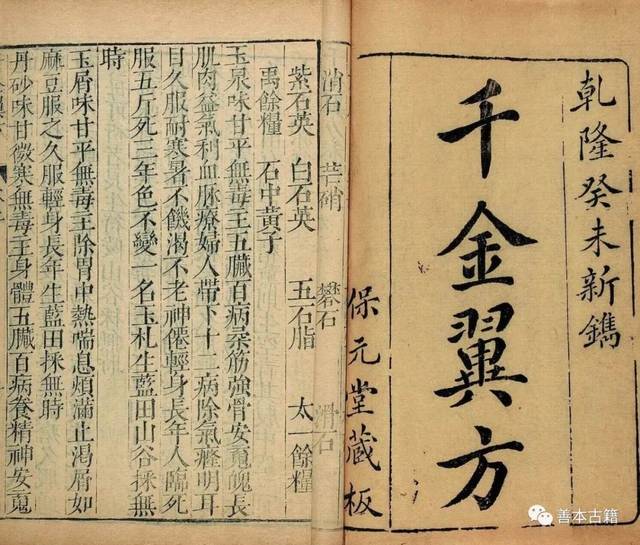 乾隆癸未新鐫
千金翼方
保元堂藏板
消石 芒硝 礬石 滑石
紫石英 白石英 五石脂 太一餘糧
禹餘糧 石中黃子
玉泉味甘平無毒主五臟百病柔筋強骨安䰟魄長
肌肉益氣利血脉療婦人帶下十二病除氣癃明耳
目久服耐寒暑不饑渴不老神僊輕身長年人臨死
服五斤死三年色不變一名玉札生藍田山谷採無
時
玉屑味甘平無毒主除胃中熱喘息煩滿止渴屑如
麻豆服之久服輕身長年生藍田採無時
丹砂味甘微寒無毒主身體五臟百病養精神安䰟
善本古籍